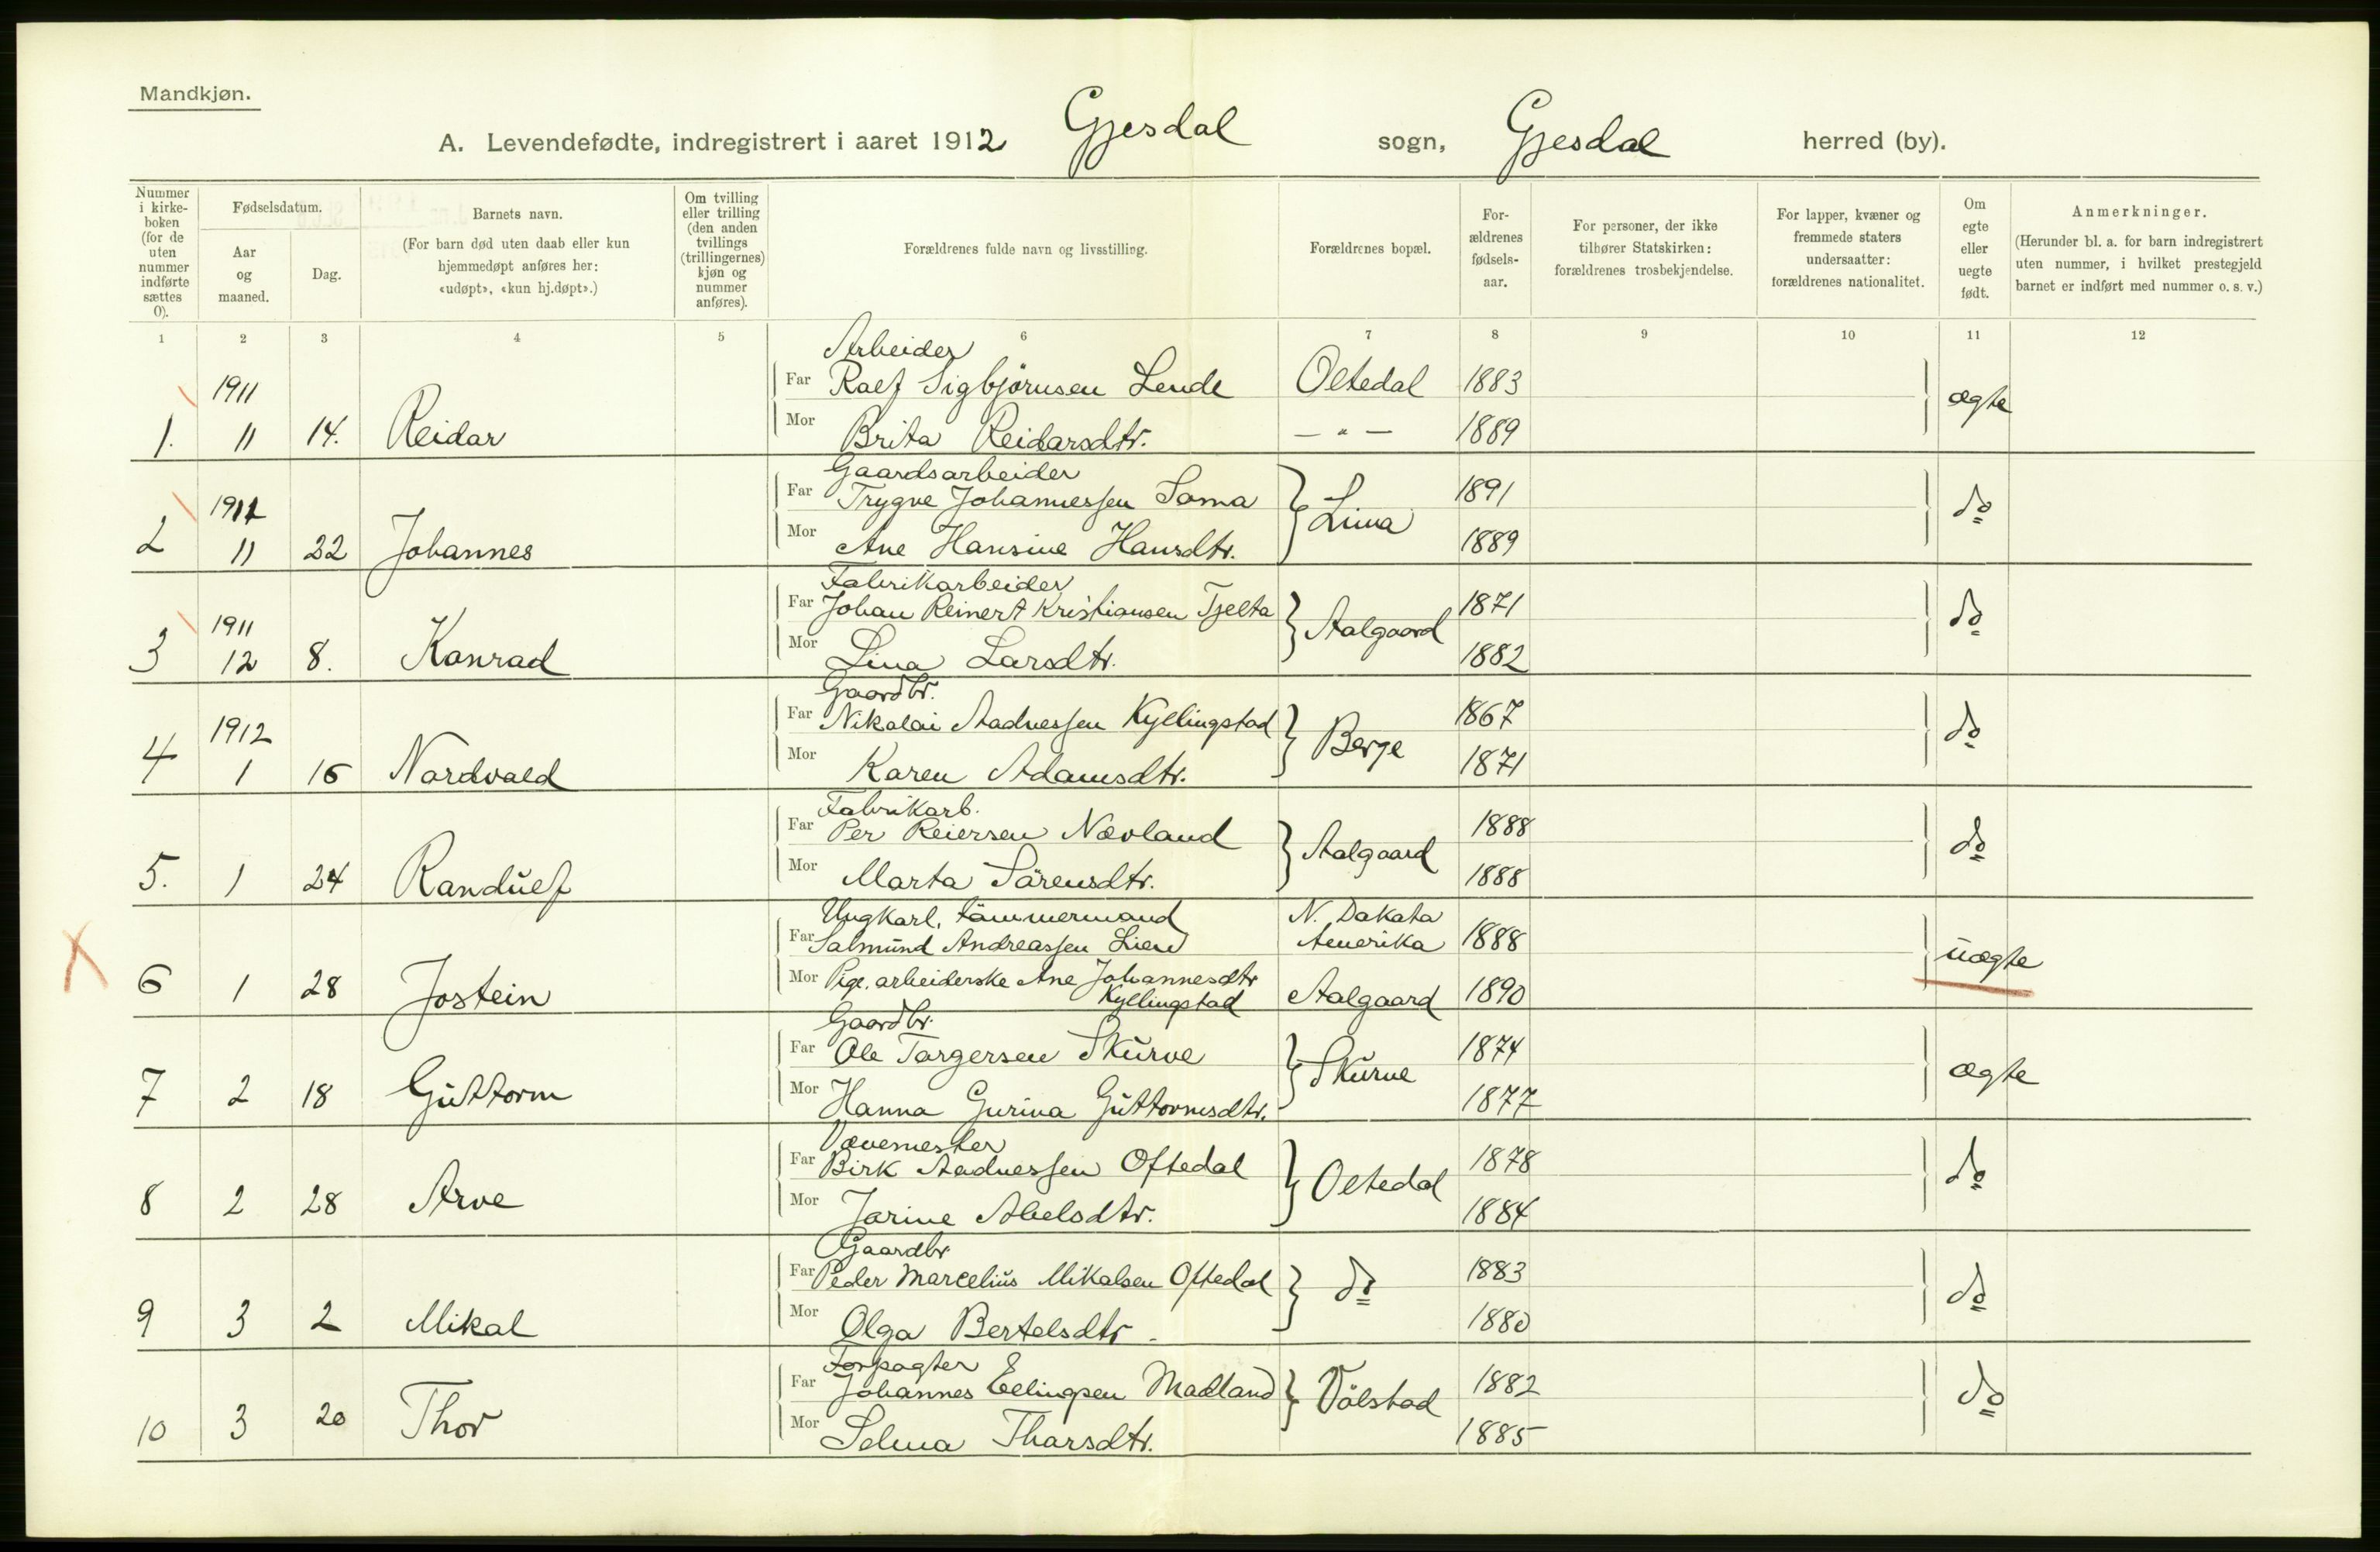 Mandkjøn.
A. Levendefødte, indregistrert i aaret 1912 Gjesdal sogn, Gjesdal herred (by).
Nummer i kirke-boken (for de uten nummer indførte sættes 0).
Fødselsdatum.
Aar og maaned.
Dag.
Barnets navn.
(For barn død uten daab eller kun hjemmedøpt anføres her: «udøpt», «kun hj.døpt».)
Om tvilling eller trilling (den anden tvillings (trillingernes) kjøn og nummer anføres).
Forældrenes fulde navn og livsstilling.
Forældrenes bopæl.
For-ældrenes fødsels-aar.
For personer, der ikke tilhører Statskirken: forældrenes trosbekjendelse.
For lapper, kvæner og fremmede staters undersaatter: forældrenes nationalitet.
Om egte eller uegte født.
Anmerkninger.
(Herunder bl. a. for barn indregistrert uten nummer, i hvilket prestegjeld barnet er indført med nummer o. s. v.)
1 2 3 4 5 6 7 8 9 10 11 12
Arbeider
1911 Far Ralf Sigbjörnsen Lende Oltedal 1883 ægte
1. 11 14. Reidar Mor Brita Reidarsdtr. — " — 1889
Gaardsarbeider
1911 Far Trygve Johannessen Soma Lima 1891 do
2 11 22 Johannes Mor Ane Hansine Hansdtr. 1889
Fabrikarbeider
1911 Far Johan Reinert Kristiansen Tjelta Aalgaard 1871 do
3 12 8. Konrad Mor Lina Larsdtr. 1882
Gaardbr.
1912 Far Nikolai Aadnessen Kyllingstad Berge 1867 do
4 1 16 Nordvald Mor Karen Adamsdtr. 1871
Fabrikarb.
Far Per Reiersen Nævland Aalgaard 1888 do
5. 1 24 Randulf Mor Marta Sörensdtr. 1888
Ungkarl, tömmermand N. Dakota
Far Salmund Andreassen Lien Amerika 1888 uægte
6 1 28 Jostein Mor Pige, arbeiderske Ane Johannesdtr Kyllingstad Aalgaard 1890
Gaardbr.
Far Ole Torgersen Skurve Skurve 1874 ægte
7 2 18 Guttorm Mor Hanna Gurina Guttormsdtr. 1877
Vævemester
Far Birk Aadnessen Oftedal Oltedal 1878 do
8 2 28 Arve Mor Jorine Abelsdtr. 1884
Gaardbr
Far Peder Marcelius Mikalsen Oftedal do 1883 do
9 3 2 Mikal Mor Olga Bertelsdtr. 1880
Forpagter
Far Johannes Ellingsen Madland Völstad 1882 do
10 3 20 Thor Mor Selma Thorsdtr. 1885